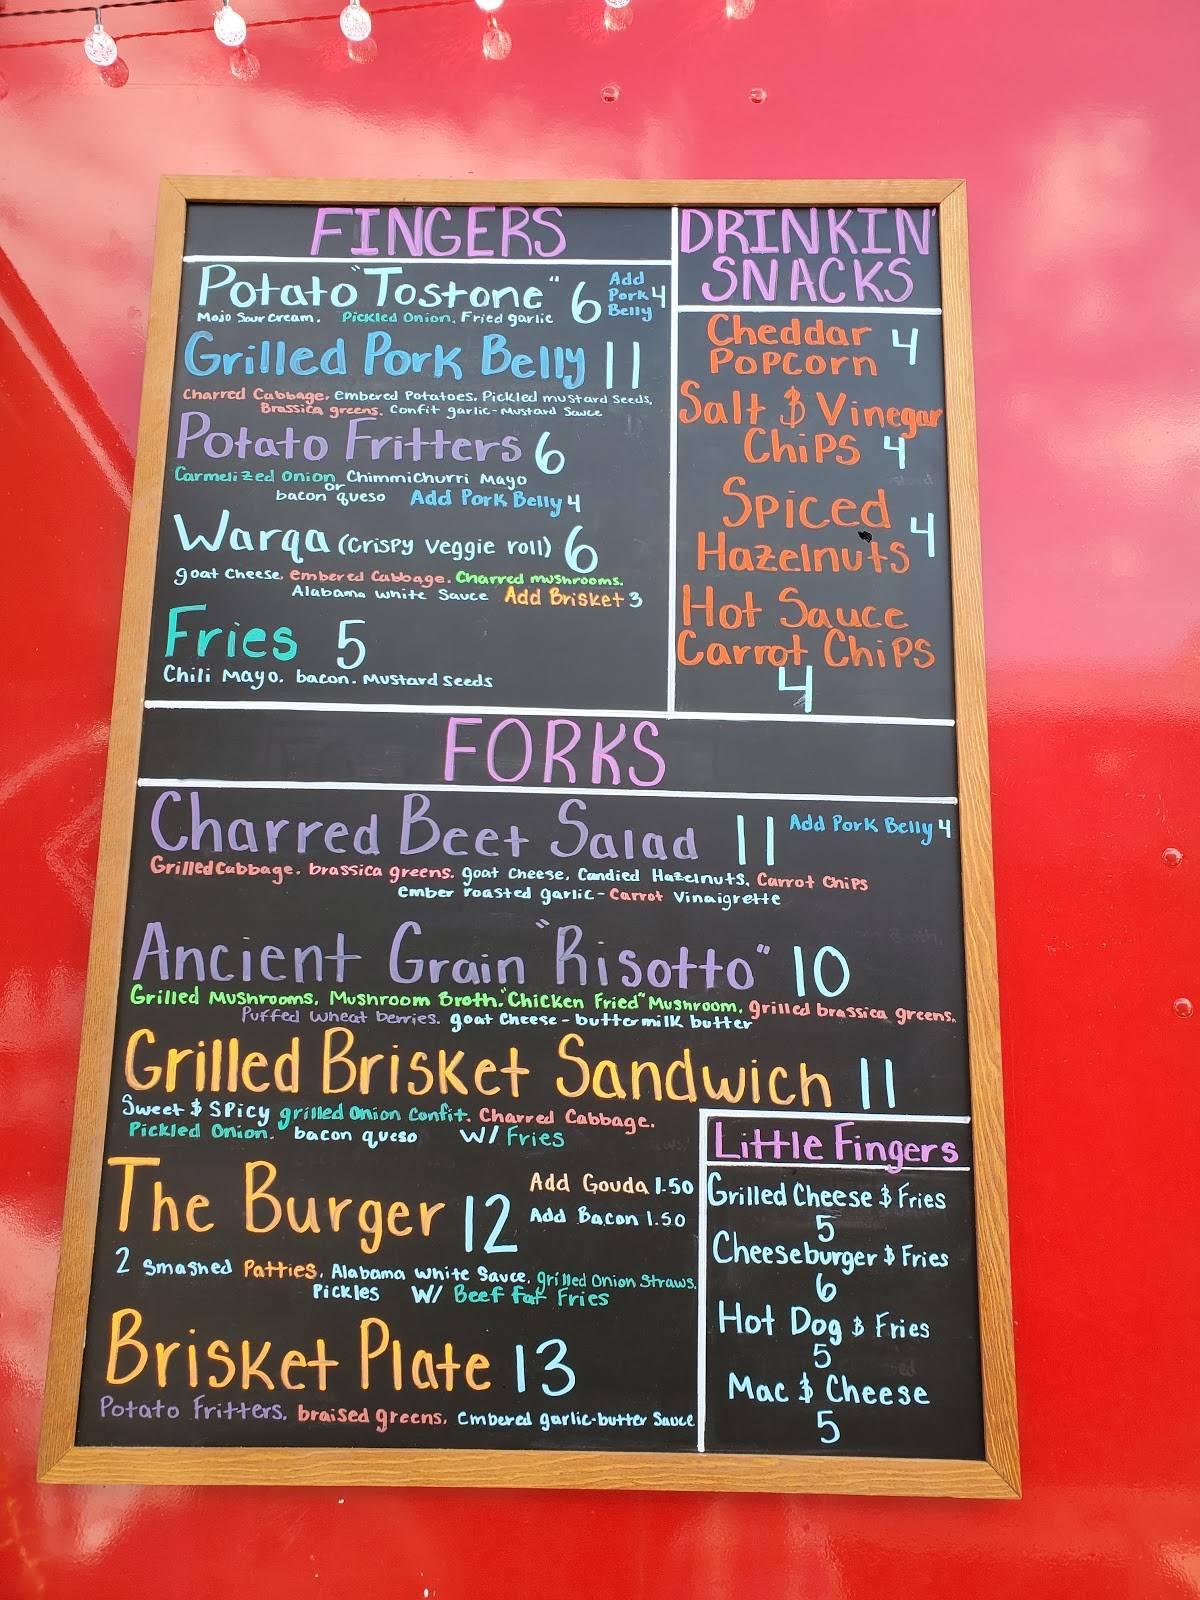 FINGERS
Potato "Tostone" 6 Add Pork Belly 4
Mojo Sour Cream. Pickled Onion. Fried garlic
Grilled Pork Belly 11
Charred Cabbage. Embered Potatoes. Pickled mustard Seeds,
Brassica greens. Confit garlic-Mustard Sauce
Potato Fritters 6
Carmelized Onion Chimmichurri Mayo
or
bacon queso Add Pork Belly 4
Warqa (Crispy Veggie roll) 6
goat Cheese. Embered Cabbage. Charred mushrooms.
Alabama White Sauce Add Brisket 3
Fries 5
Chili Mayo. bacon. Mustard Seeds
DRINKIN'
SNACKS
Cheddar
Popcorn 4
Salt & Vinegar
Chips 4
Spiced
Hazelnuts 4
Hot Sauce
Carrot Chips
4
FORKS
Charred Beet Salad 11 Add Pork Belly 4
Grilled Cabbage. brassica greens. goat Cheese. Candied Hazelnuts. Carrot Chips
Ember roasted garlic-Carrot Vinaigrette
Ancient Grain "Risotto" 10
Grilled Mushrooms. Mushroom Broth. "Chicken Fried" Mushroom. grilled brassica greens.
Puffed Wheat berries. goat Cheese-buttermilk butter
Grilled Brisket Sandwich 11
Sweet & Spicy grilled Onion Confit. Charred Cabbage.
Pickled Onion. bacon queso W/ Fries
The Burger 12 Add Gouda 1.50
Add Bacon 1.50
2 Smashed Patties. Alabama White Sauce. grilled Onion Straws.
Pickles W/ Beef fat Fries
Brisket Plate 13
Potato Fritters. braised greens. Embered garlic-butter Sauce
Little Fingers
Grilled Cheese & Fries
5
Cheeseburger & Fries
6
Hot Dog & Fries
5
Mac & Cheese
5